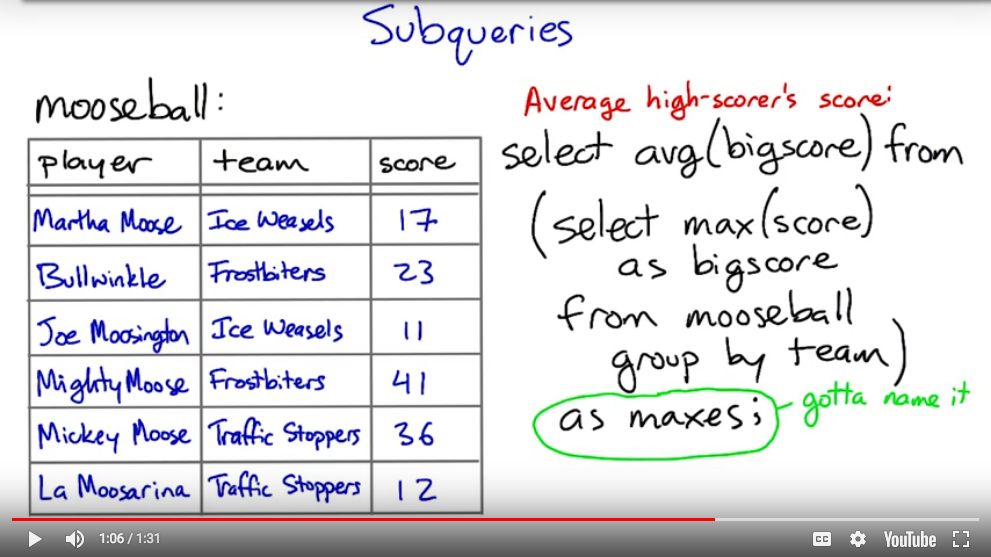 Subqueries
mooseball:
player team score
Martha Moose Ice Weasels 17
Bullwinkle Frostbiters 23
Joe Moosington Ice Weasels 11
Mighty Moose Frostbiters 41
Mickey Moose Traffic Stoppers 36
La Moosarina Traffic Stoppers 12
Average high-scorer's score:
select avg(bigscore) from
(select max(score)
as bigscore
from mooseball
group by team)
as maxes;
gotta name it
1:06 / 1:31
CC
YouTube